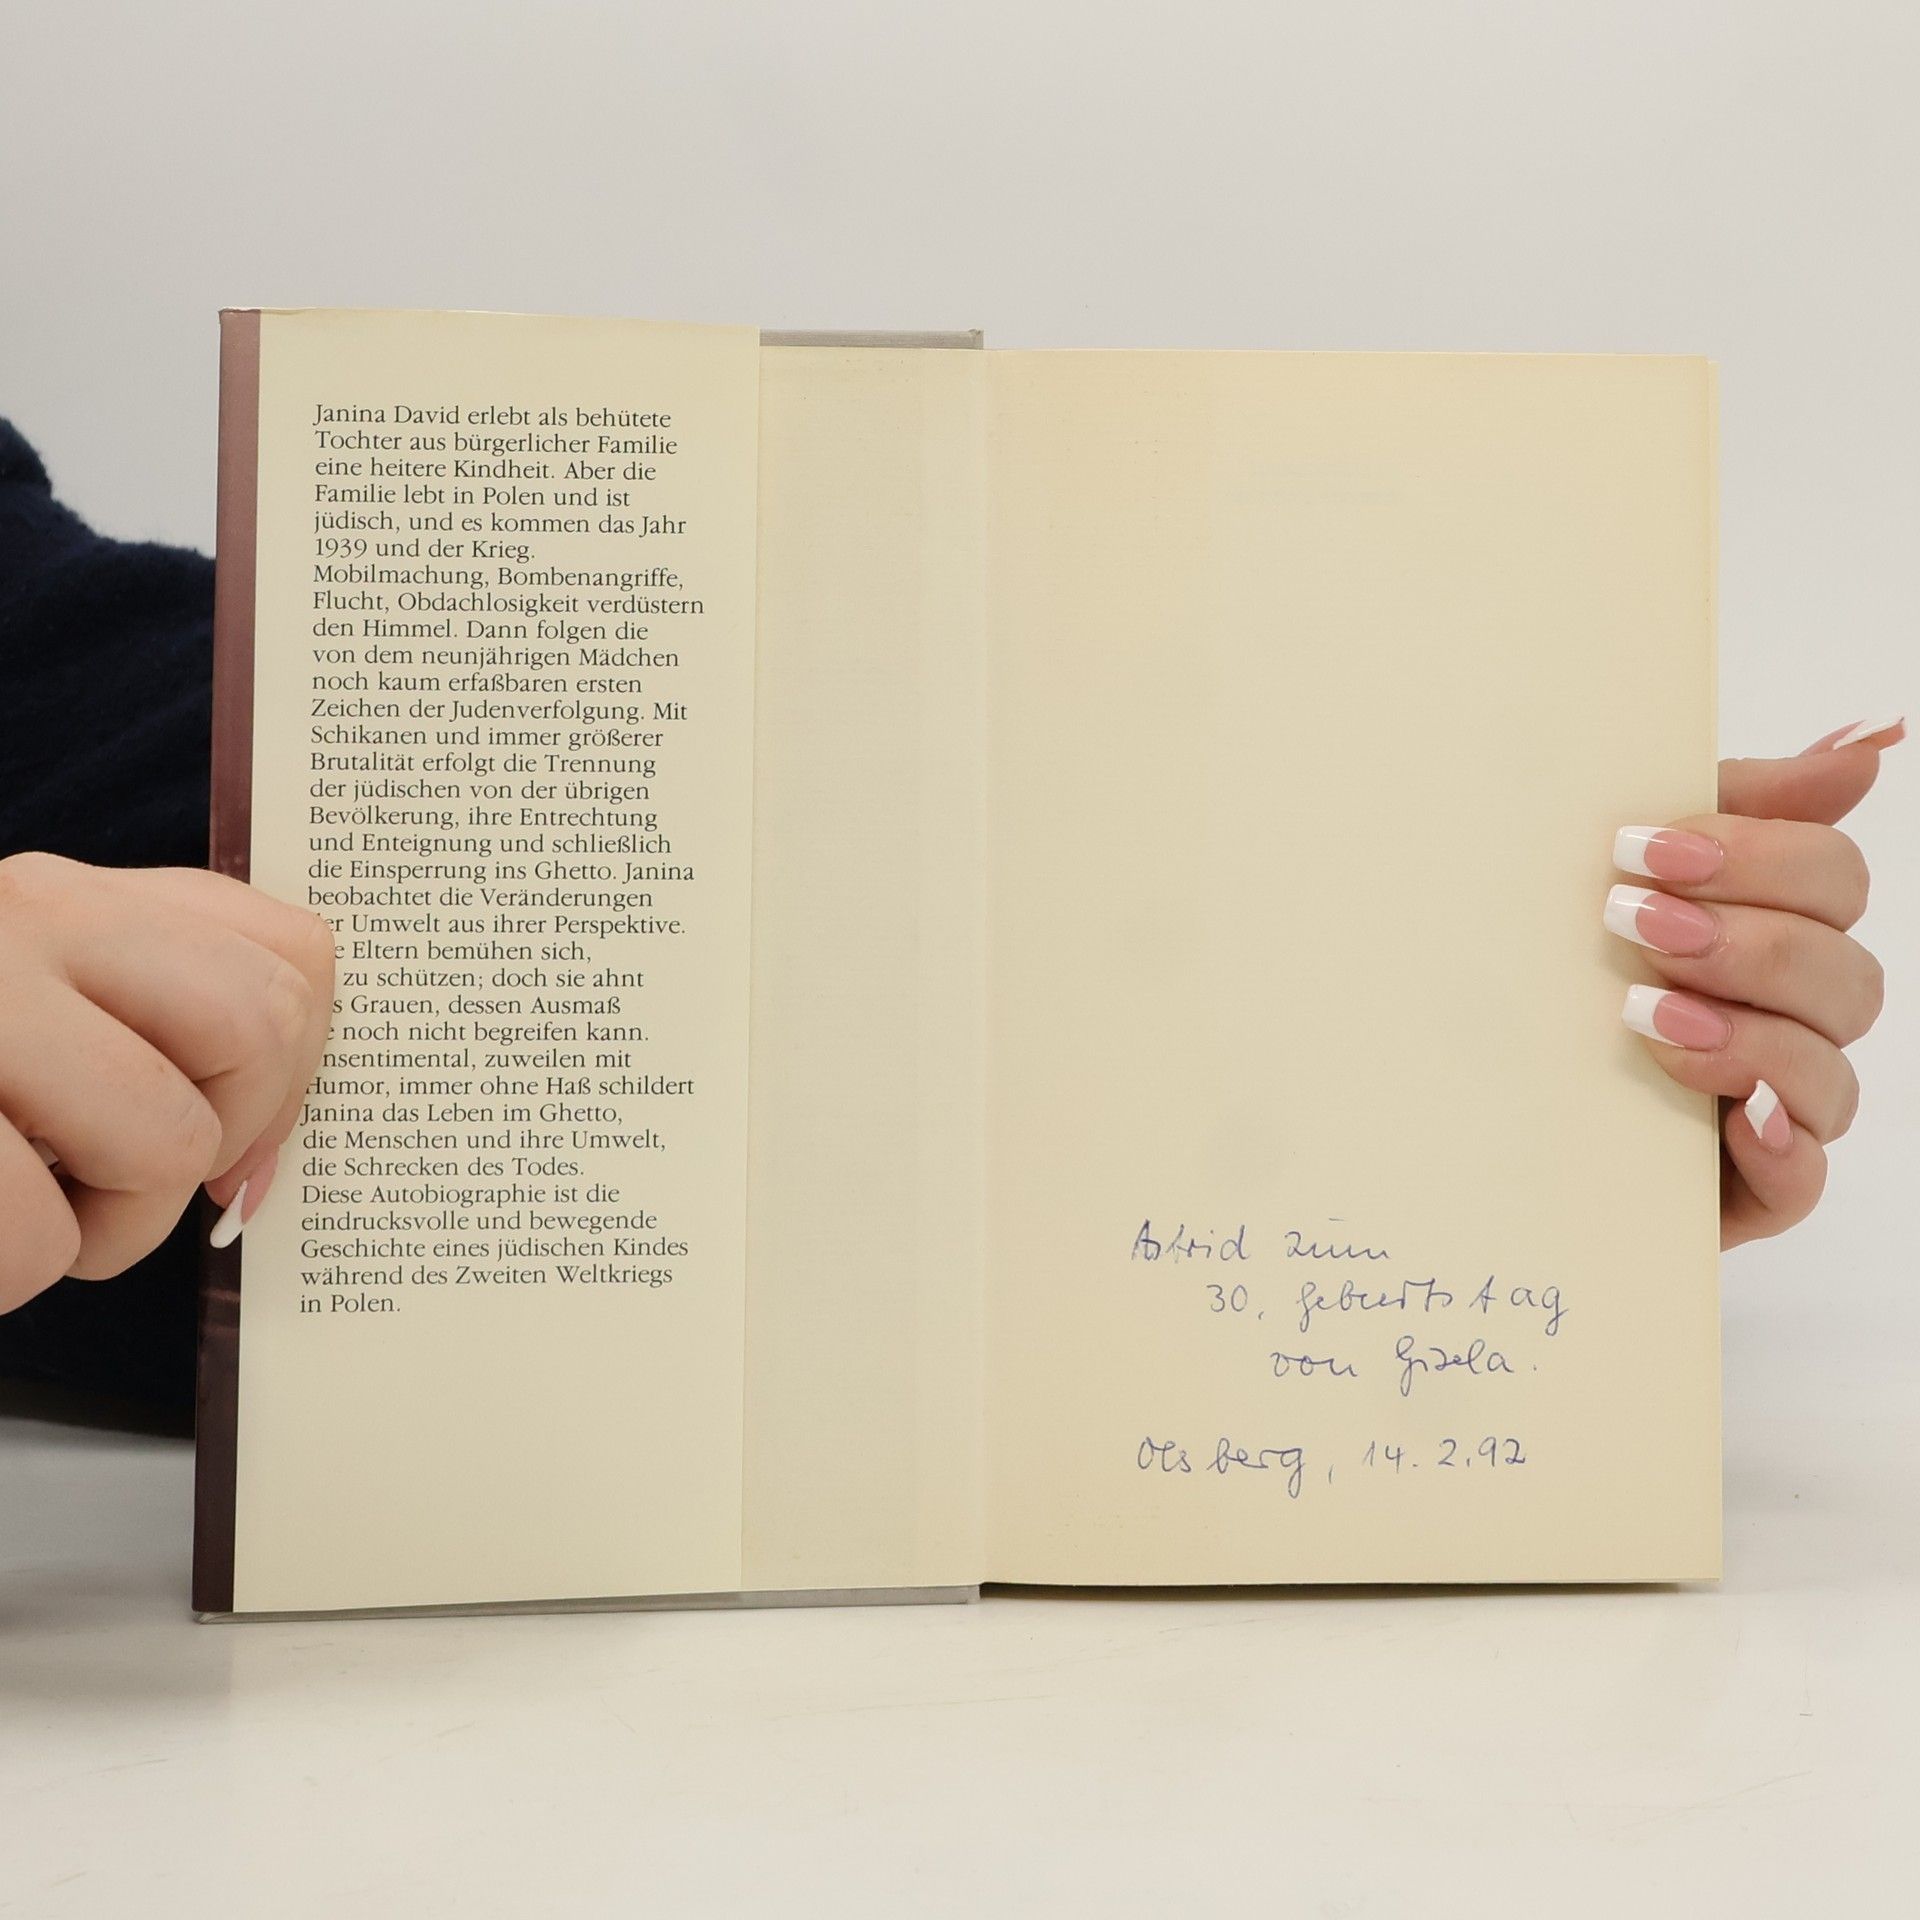 Janina David erlebt als behütete
Tochter aus bürgerlicher Familie
eine heitere Kindheit. Aber die
Familie lebt in Polen und ist
jüdisch, und es kommen das Jahr
1939 und der Krieg.
Mobilmachung, Bombenangriffe,
Flucht, Obdachlosigkeit verdüstern
den Himmel. Dann folgen die
von dem neunjährigen Mädchen
noch kaum erfaßbaren ersten
Zeichen der Judenverfolgung. Mit
Schikanen und immer größerer
Brutalität erfolgt die Trennung
der jüdischen von der übrigen
Bevölkerung, ihre Entrechtung
und Enteignung und schließlich
die Einsperrung ins Ghetto. Janina
beobachtet die Veränderungen
der Umwelt aus ihrer Perspektive.
Eltern bemühen sich,
zu schützen; doch sie ahnt
Grauen, dessen Ausmaß
noch nicht begreifen kann.
nsentimental, zuweilen mit
Humor, immer ohne Haß schildert
Janina das Leben im Ghetto,
die Menschen und ihre Umwelt,
die Schrecken des Todes.
Diese Autobiographie ist die
eindrucksvolle und bewegende
Geschichte eines jüdischen Kindes
während des Zweiten Weltkriegs
in Polen.
Astrid zum
30. Geburtstag
von Gisela.
Olsberg, 14.2.92